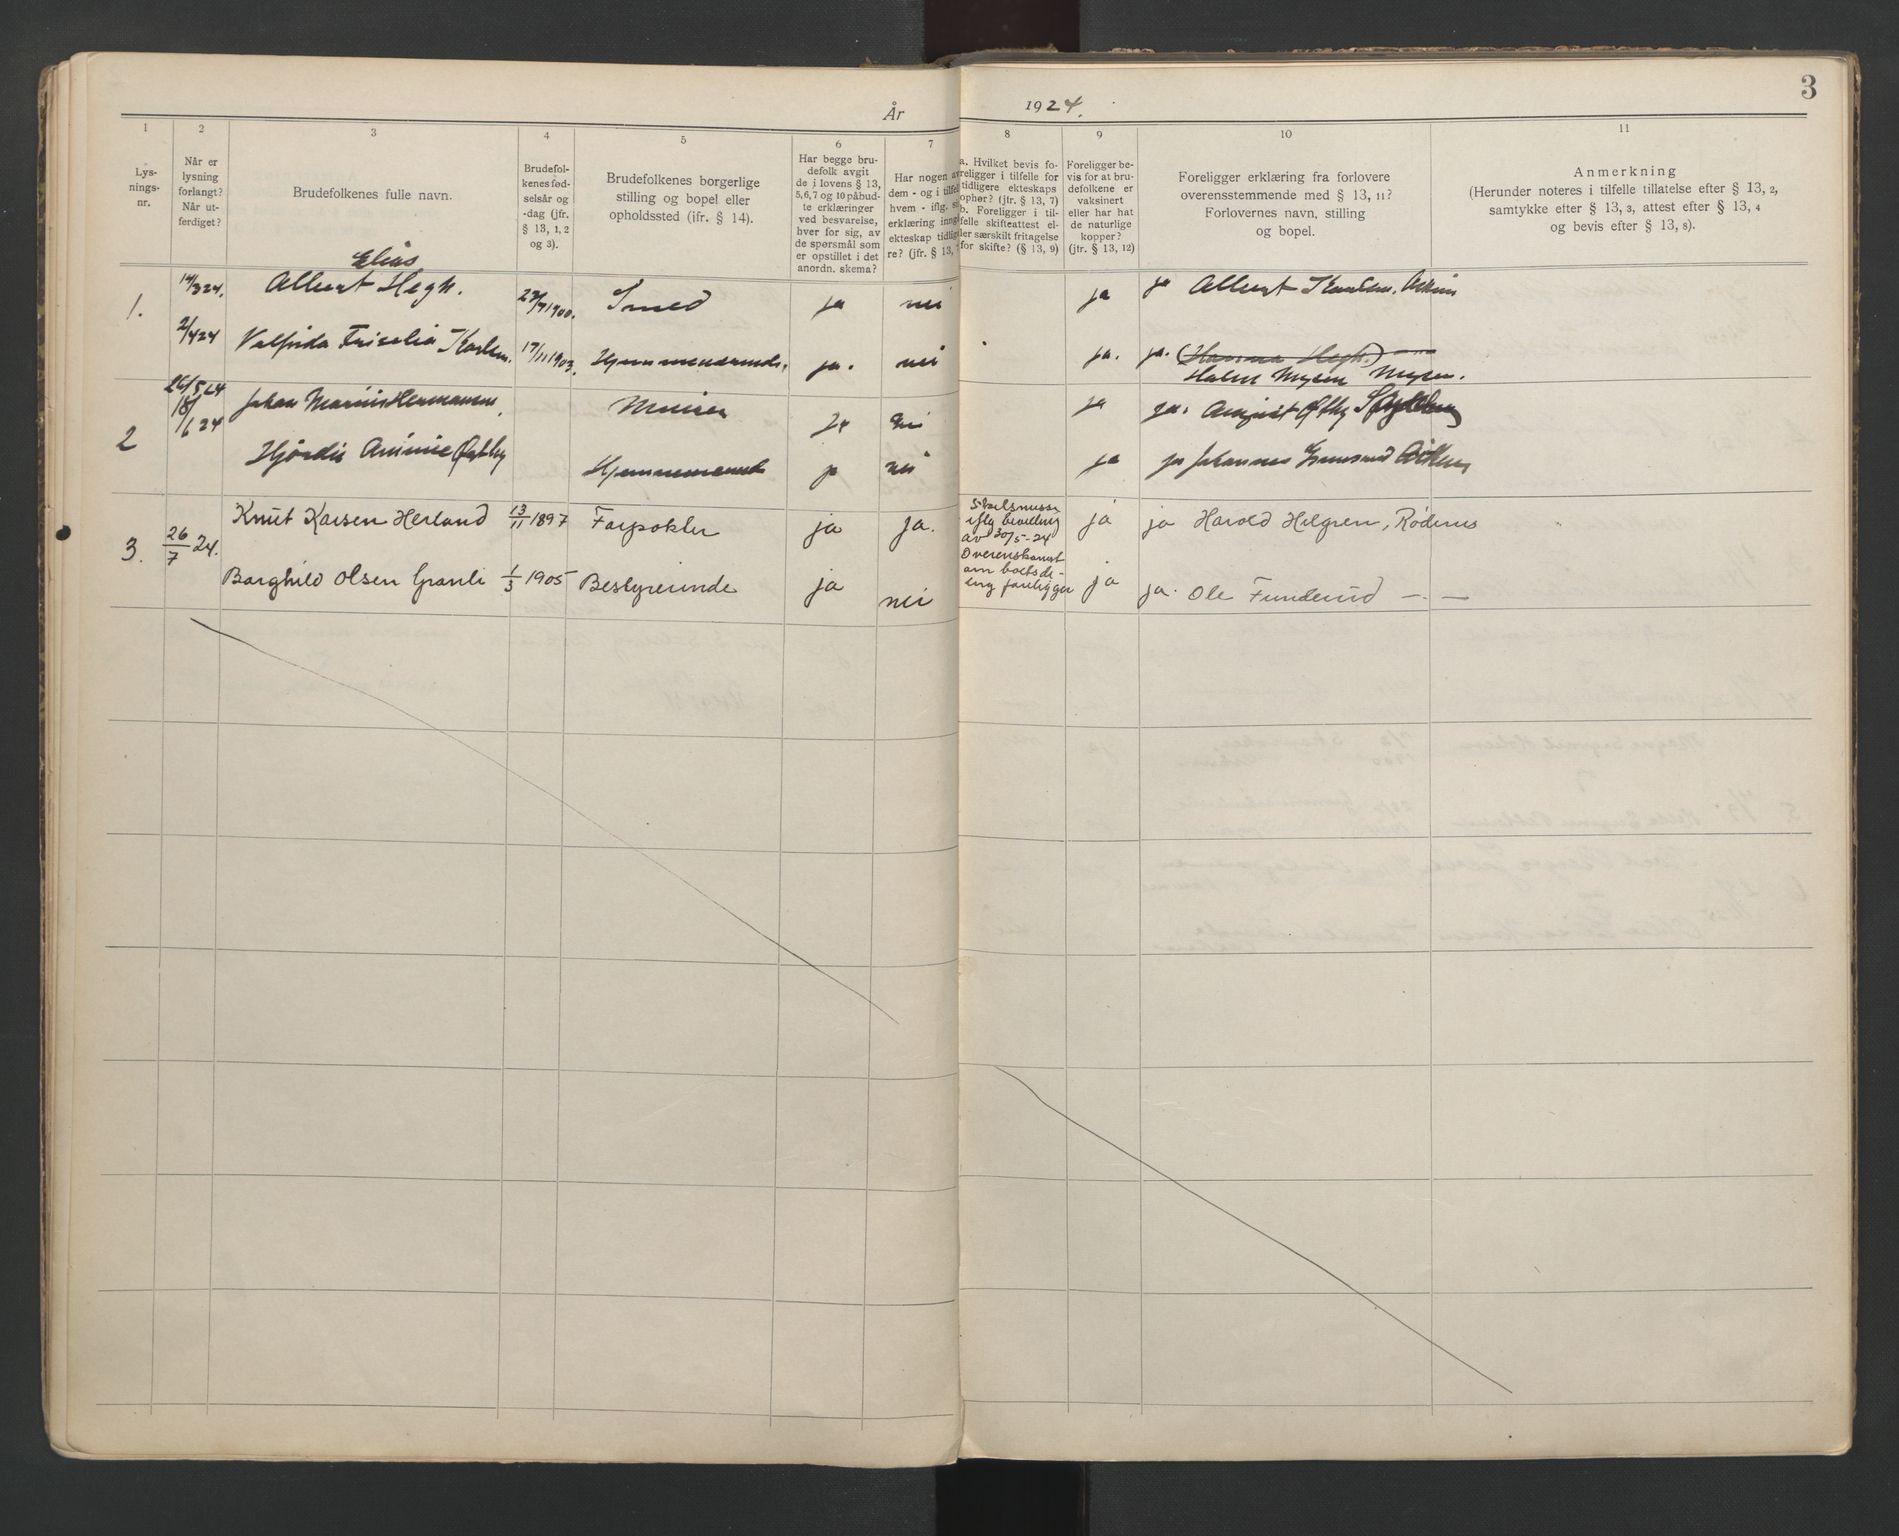 3
År 1924.
1 2 3 4 5 6 7 8 9 10 11
Lys-
nings-
nr.
Når er
lysning
forlangt?
Når ut-
ferdiget?
Brudefolkenes fulle navn.
Brudefol-
kenes fød-
selsår og
-dag (jfr.
§ 13, 1, 2
og 3).
Brudefolkenes borgerlige
stilling og bopel eller
opholdssted (ifr. § 14).
Har begge bru-
defolk avgit
de i lovens § 13,
5,6,7 og 10 påbud-
te erklæringer
ved besvarelse,
hver for sig, av
de spørsmål som
er opstillet i det
anordn. skema?
Har nogen av
dem - og i tilfelle
hvem - iflg.
erklæring
ekteskap
re? (jfr. § 13,
a. Hvilket bevis fo-
religger i tilfelle for
tidligere ekteskaps
ophør? (jfr. § 13, 7)
b. Foreligger i til-
felle skifteattest el-
ler særskilt fritagelse
for skifte? (§ 13, 9)
Foreligger be-
vis for at bru-
defolkene er
vaksinert
eller har hat
de naturlige
kopper?
(jtr. § 13, 12)
Foreligger erklæring fra forlovere
overensstemmende med § 13, 11?
Forlovernes navn, stilling
og bopel.
Anmerkning
(Herunder noteres i tilfelle tillatelse efter § 13, 2,
samtykke efter § 13, 3, attest efter § 13, 4
og bevis efter § 13, 8).
Elias
1. 14/3 24. Albert Hegh. 1900. Smed ja nei ja ja Albert Karlsen, Askim
2/4 24 Valfrida Karlsen. 17/11 1903. ja. nei ja. ja. (Hanna Hegh.)
Halvor Mysen Mysen.
2 26/5 24 Johan Marius Hermansen, Murer Ja nei ja ja. August Østby
18/6 24
Hjørdis Aminie Østby Hjemmeværende ja nei ja ja Johannes Grimsrud Askim
3. 26/7 24. Knut Karsen Herland 13/11 1897 Farpokler ja ja. Skilsmisse
iflg bevilling
av 30/5-24 ja ja Harold Helgren, Rødenes
Borghild Olsen Granli 1/3 1905 Bestyrerinde ja nei Overenskomst
om boets de-
ling foreligger ja ja. Ole Funderud — —